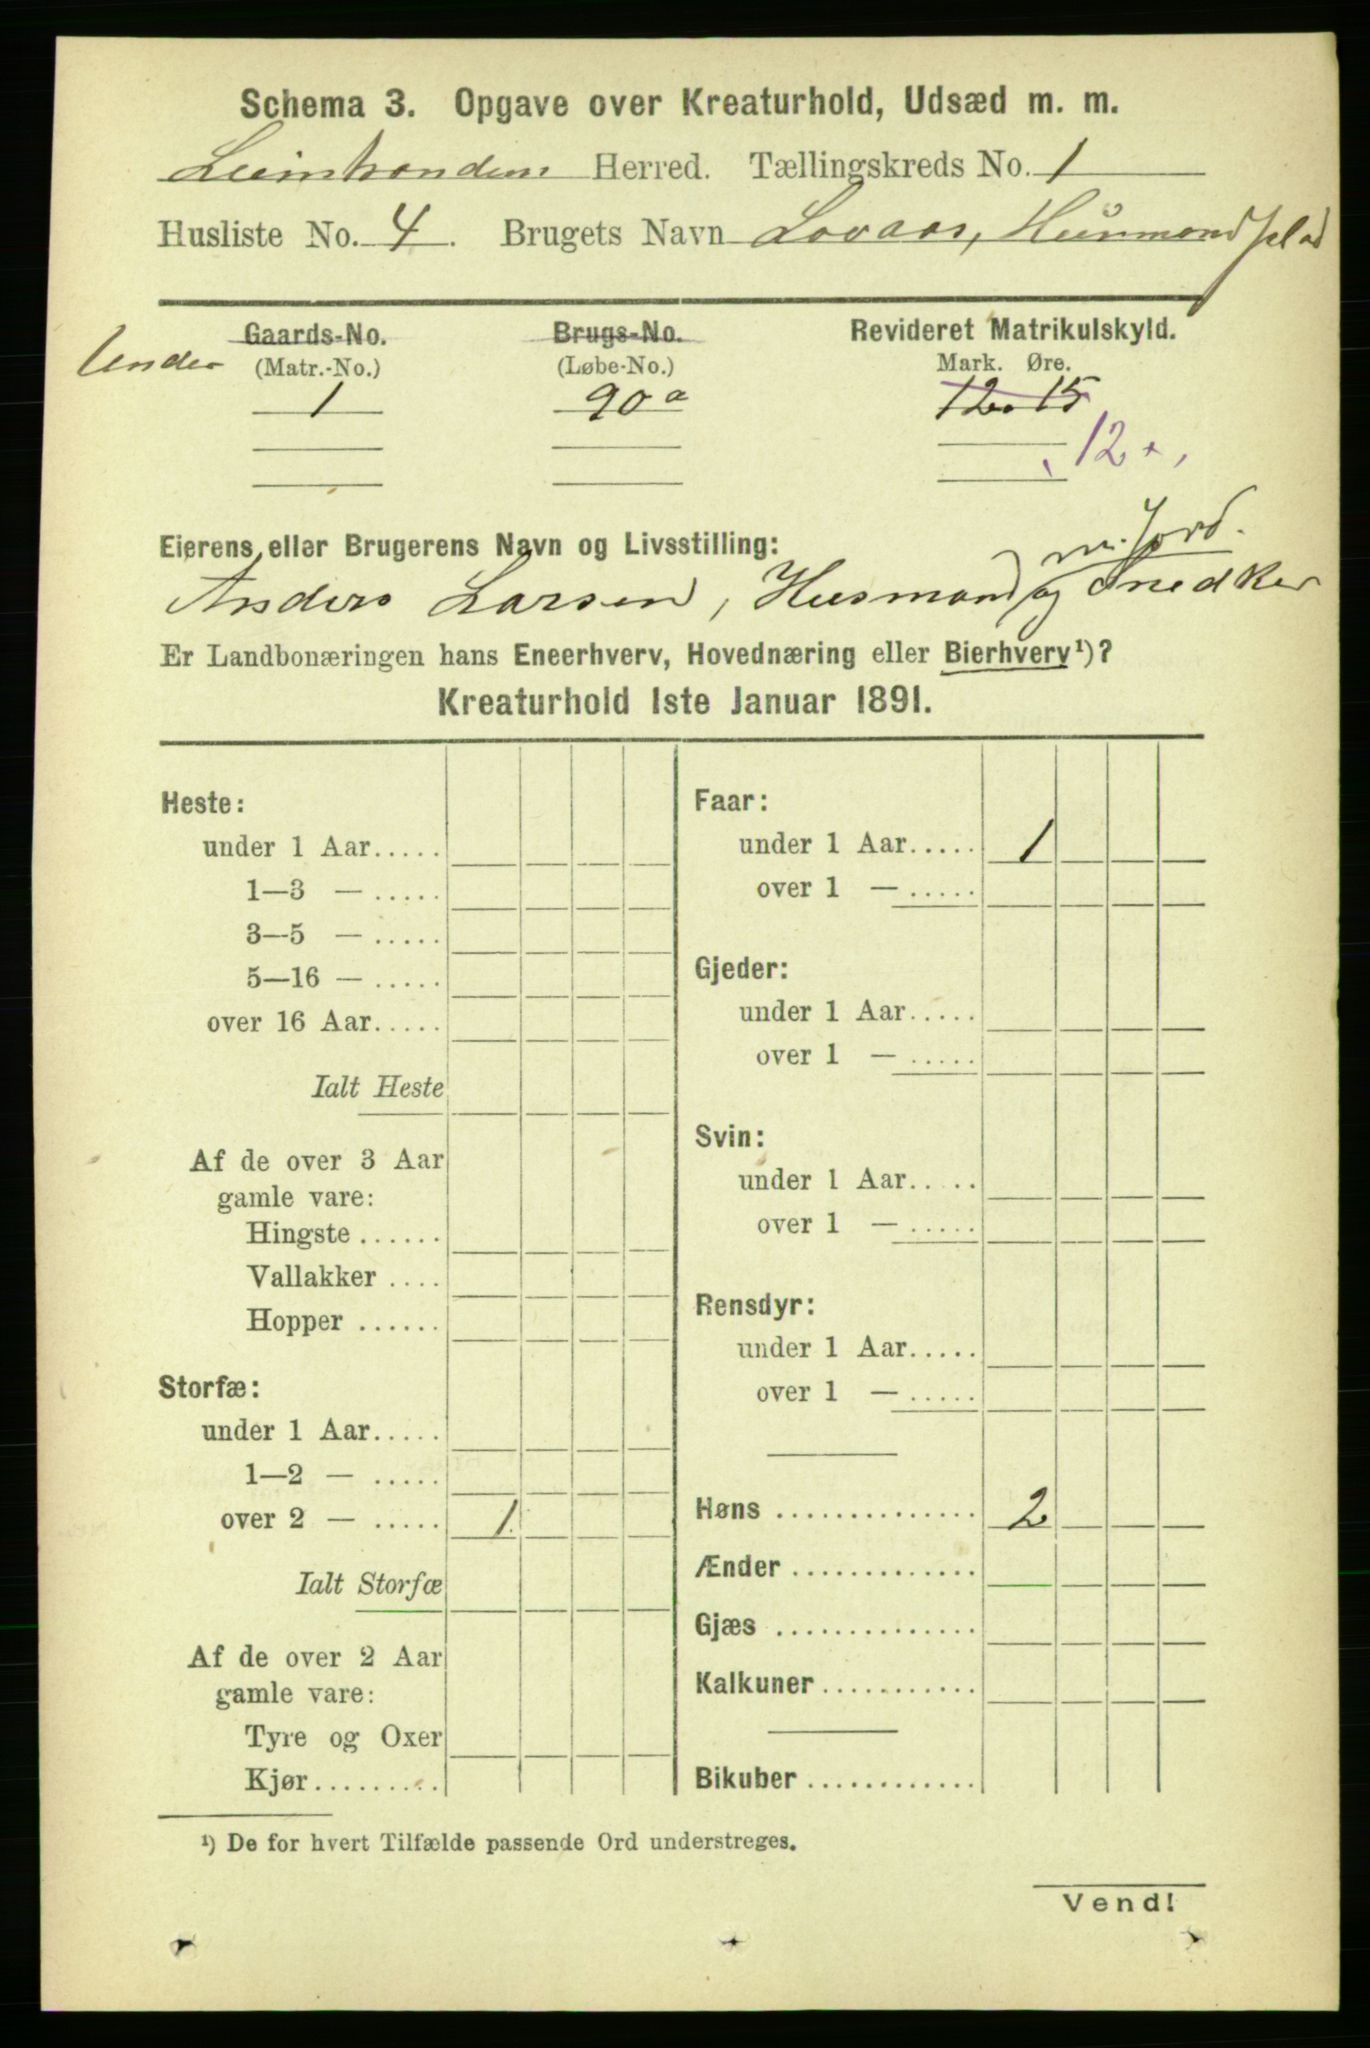 Schema 3. Opgave over Kreaturhold, Udsæd m. m.
Leinstrandens Herred. Tællingskreds No. 1
Husliste No. 4. Brugets Navn Lovaas, Husmandsplad
Gaards-No. Brugs-No. Revideret Matrikulskyld.
Under (Matr.-No.) (Løbe-No.) Mark. Øre.
1 90 a 12 15
12
Eierens eller Brugerens Navn og Livsstilling:
m. Jord.
Anders Larsen, Husmand og Snedker
Er Landbonæringen hans Eneerhverv, Hovednæring eller Bierhverv¹)?
Kreaturhold 1ste Januar 1891.
Heste:
under 1 Aar.....
1—3 — .....
3—5 — .....
5—16 — .....
over 16 Aar.....
Ialt Heste
Af de over 3 Aar
gamle vare:
Hingste ......
Vallakker ....
Hopper ......
Storfæ:
under 1 Aar.....
1—2 — .....
over 2 — ..... 1
Ialt Storfæ
Af de over 2 Aar
gamle vare:
Tyre og Oxer
Kjør.........
Faar:
under 1 Aar..... 1
over 1 — .....
Gjeder:
under 1 Aar.....
over 1 — .....
Svin:
under 1 Aar.....
over 1 — .....
Rensdyr:
under 1 Aar.....
over 1 — .....
Høns .............. 2
Ænder .............
Gjæs ..............
Kalkuner...........
Bikuber ............
¹) De for hvert Tilfælde passende Ord understreges.
Vend!